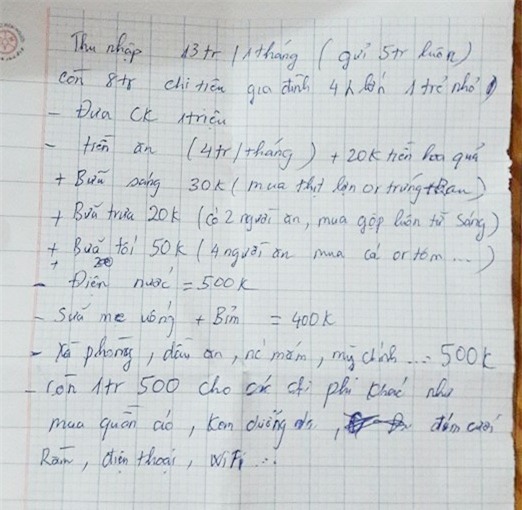 Thu nhập 13tr / 1tháng ( gửi 5tr luôn )
còn 8tr chi tiêu gia đình 4 lớn 1 trẻ nhỏ
- Đưa CK 1triệu
- tiền ăn (4tr/tháng) + 20K tiền hoa quả
+ Bữa sáng 30K ( mua thịt lợn or trứng + Rau )
+ Bữa trưa 20K (có 2 người ăn, mua gộp luôn từ sáng)
+ Bữa tối 50K ( 4 người ăn mua cá or tôm ... )
- Điện nước = 500K
- Sữa mẹ uống + Bỉm = 400K
- Xà phòng, dầu ăn, nc mắm, mỳ chính ... 500K
- Còn 1tr 500 cho các chi phí khác như
mua quần áo, kem dưỡng da, đám cưới
Rằm, điện thoại, WiFi ...